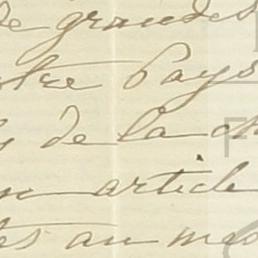 de grandes
tre Pays
de la ch
article
tes au mes